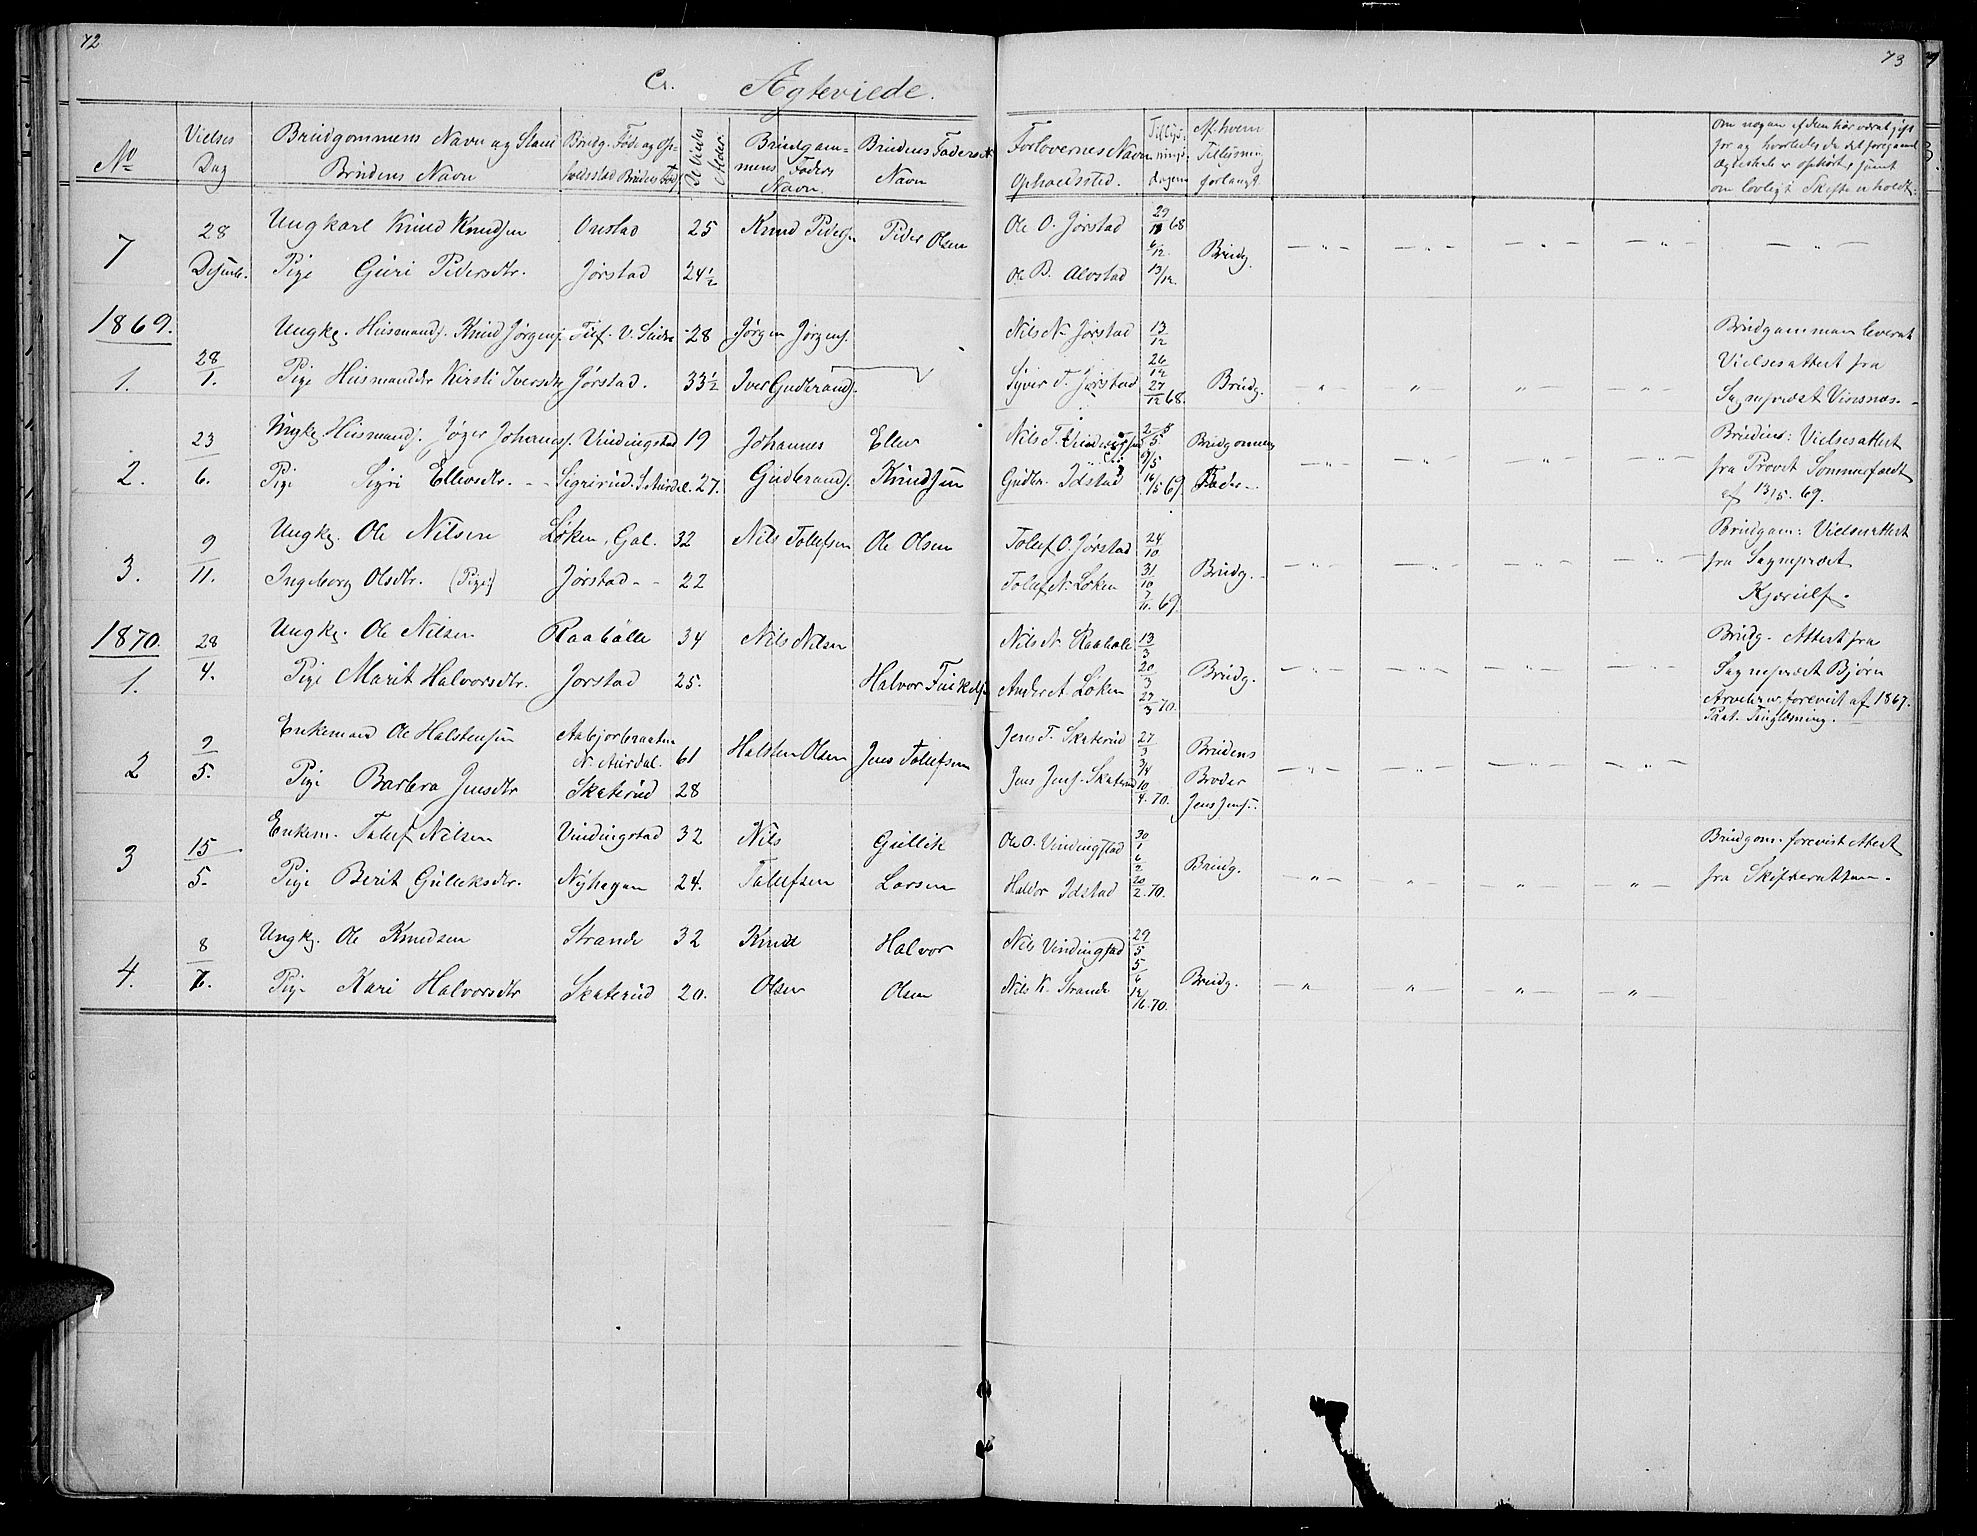 72
73
C. Ægteviede.
No
Vielses Dag
Brudgommens Navn og Stand
Brudens Navn
Brudg. Føde og Op-
holdsstad Brudens Føds.
De Viedes Alder
Brudgom-
mens Faders
Navn
Brudens Faders
Navn
Forlovernes Navn
Opholdssted.
Tillys-
nings-
dagene
Af hvem
Tillysning
forlangt.
Om nogen af dem har været gift
før og hvorledes da det foregaaende
Ægteskab er ophørt, samt
om lovligt Skifte er holdt.
7 28 Ungkarl Knud Knudsen Onstad 25 Knud Peders. Peder Olsen Ole O. Jørstad 29/11 68
6/12 Brudg.
Desemb. Pige Guri Pedersdtr. Jørstad 24 1/2 Ole B. Alvstad 13/12.
1869.
Ungk. Husmands. Knud Jørgens. 28 Jørgen Jørgens. Nils N. Jørstad 13/12 Brudgommen leveret
1. 28/1. Pige Husmandsdtr Kirsti Iversdtr Jørstad. 33 1/2 Iver Gudbrands. Syver T. Jørstad 26/12 27/12 68. Brudg. Vielsesattest fra
Sognepræst Vinsnæs.
2. 23/6. Ungk. Husmands. Johannes. Vindingstad 19 Johannes Ellev Nils T. Vindingstad 2/5 Brudgommens Brudens: Vielsesattest
Pige Sigri Ellevsdtr. Sigrirud. S. Aurdal. 27. Gudbrands. Knudsen Gudbr. Idstad 9/5 16/5 69 Fader. fra Provst Sommerfeldt
af 13/5. 69.
3. 9/11. Ungk. Ole Nilsen Løken, Gol. 32 Nils Tolefsen Ole Olsen Tolef O. Jørstad 24/10 Brudgom: Vielsesattest
Ingeborg Olsdtr. (Pige) Jørstad 22 Tolef N. Løken 31/10 7/11. 69. Brudg. fra Sognepræst
Kjerulf.
1870.
1. 28/4. Ungk. Ole Nilsen Raabøle 34 Nils Nilsen Nils N. Raabøle 13/3 Brudg. Attest fra
Pige Marit Halvorsdtr. Jørstad 25. Halvor Finkels. Anders A. Løken 20/3 27/3 70. Brudg. Sognepræst Bjørn
forevist af 1867.
2 9/5. Enkemand Ole Halstensen Aabjorbraaten N. Aurdal. 61 Halsten Olsen Jens Tolefsen Jens T. Skaterud 27/3 Brudens
Pige Barbra Jensdtr Skaterud 28 Jens Jens. Skaterud 3/4 10/4. 70. Broder
Jens Jens.
3 15/5. Enkem. Tolef Nilsen Vindingstad 32 Nils Gullik Ole O. Vindingstad 30/1 Brudgom. forevist Attest
Pige Berit Gulleksdtr. Nyhagen 24. Tolefsen Larsen Haldor Idstad 6/2 20/2. 70. Brudg. fra Skifteretten.
4. 8/7. Ungk. Ole Knudsen Strande 32 Knud Halvor Nils Vindingstad 29/5
Pige Kari Halvorsdtr Skaterud 20. Olsen Olsen Nils K. Strande 5/6 12/6. 70. Brudg.